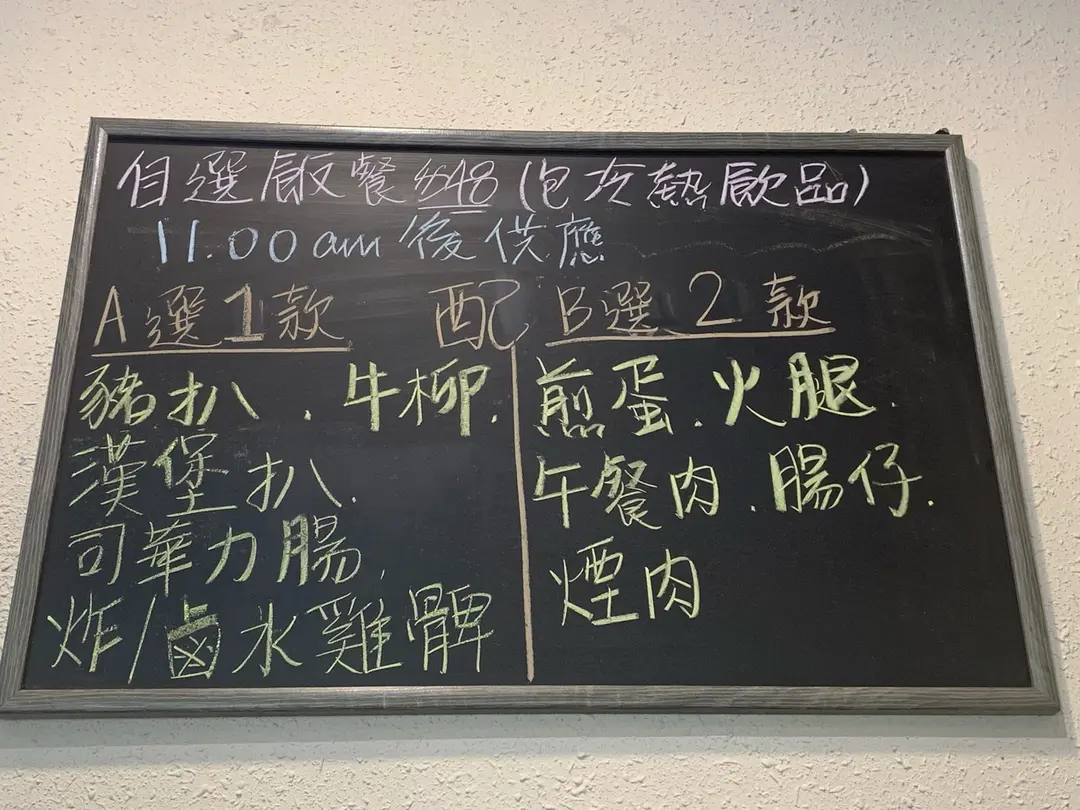 自選飯餐$48(包冷熱飲品)
11.00am後供應
A選1款 配 B選2款
豬扒．牛柳．
漢堡扒．
司華力腸，
炸/鹵水雞髀
煎蛋．火腿．
午餐肉．腸仔．
煙肉